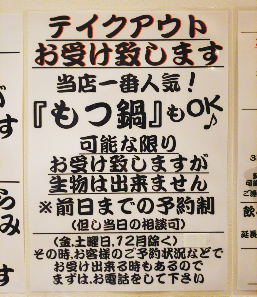 テイクアウト
お受け致します
当店一番人気!
『もつ鍋』もOK♪
可能な限り
お受け致しますが
生物は出来ません
※前日までの予約制
(但し当日の相談可)
(金、土曜日、12月除く)
その時、お客様のご予約状況などで
お受け出来る時もあるので
まずは、お電話をして下さい